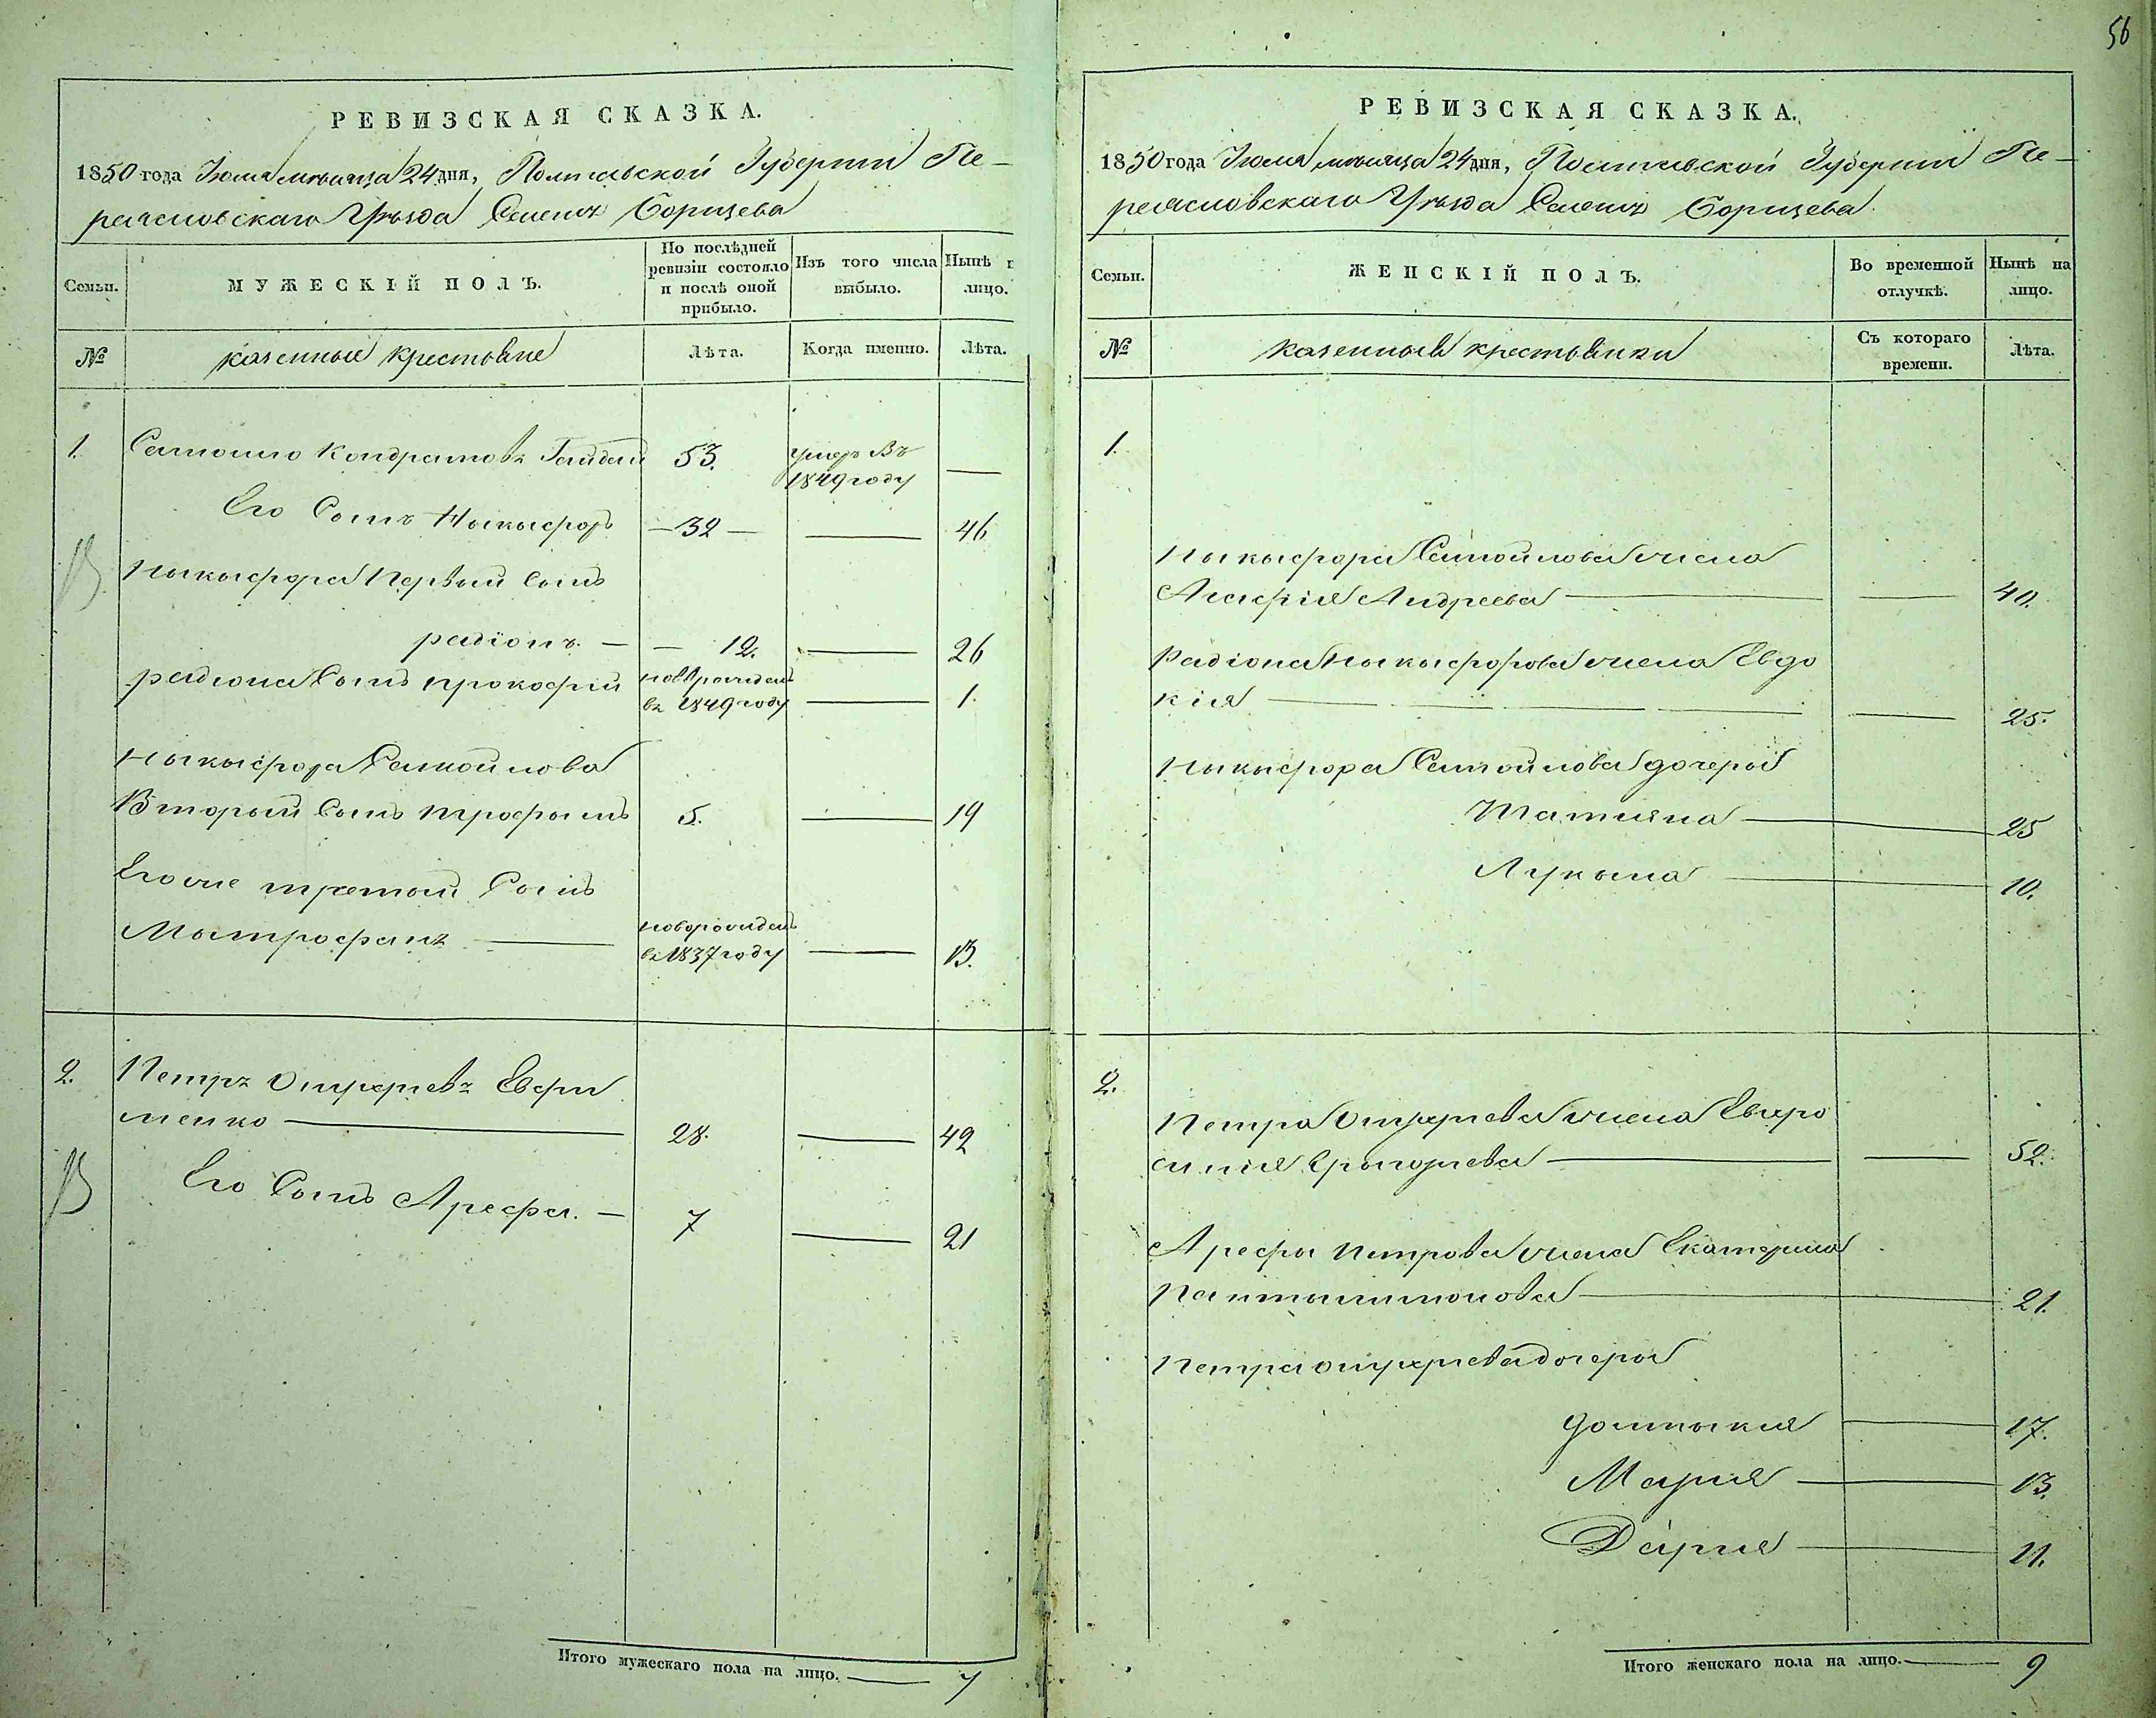 56
РЕВИЗСКАЯ СКАЗКА.
1850 года Июля мѣсяца 24 дня, Полтавской Губерніи Пе-
реясловскаго Уѣзда Селенія Борщева
Семьи.
МУЖЕСКІЙ ПОЛЪ.
По послѣдней
ревизіи состояло
и послѣ оной
прибыло.
Изъ того числа
выбыло.
Нынѣ
лицо.
№
казенные крестьяне
Лѣта.
Когда именно.
Лѣта.
1.
Самойло Кондратовъ Гайдай
53.
умеръ Въ
1849 году
—
Его Сынъ Ныкыфоръ
— 32 —
—
46
Ныкыфора Первый Сынъ
радіонъ. —
— 12.
—
26
радіона Сынъ прокофій
новорожденъ
въ 1849 году
—
1.
Ныкыфора Самойлова
Вторый Сынъ трофымъ
5.
—
19
Его же третый Сынъ
Мытрофанъ —
новорожденъ
въ 1837 году
—
13.
2.
Петръ Онуфріевъ Евфи
менко —
28.
—
42
Его Сынъ Арефа. —
7
—
21
Итого мужескаго пола на лицо. — 7
РЕВИЗСКАЯ СКАЗКА.
1850 года Июля мѣсяца 24 дня, Полтавской Губерніи Пе-
реясловскаго Уѣзда Селенія Борщева.
Семьи.
ЖЕНСКІЙ ПОЛЪ.
Во временной
отлучкѣ.
Нынѣ на
лицо.
№
казенныя крестьянки
Съ котораго
времени.
Лѣта.
1.
Ныкыфора Самойлова жена
Агафія Андреева —
—
40.
Радіона Ныкыфорова жена Евдо
кія —
—
25.
Ныкыфора Самойлова дочеры
Татияна — 25
Лукына — 10.
2.
Петра Онуфріева жена Евфро
синия Грыгорьева —
—
52.
Арефы Петрова жена Екатерина
Пантылимонова — 21.
Петра Онуфріева дочеры
домныкия — 17.
Мария — 13.
Дария — 11.
Итого женскаго пола на лицо. — 9